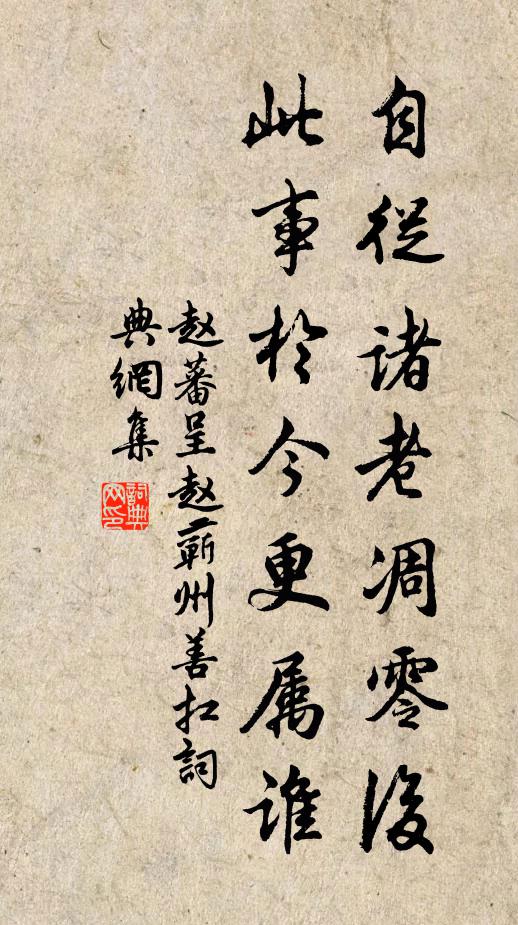 自從诸老凋零後
此事於今更属誰
赵蕃呈赵蕲州善扛詞
典網集
詞典
网印